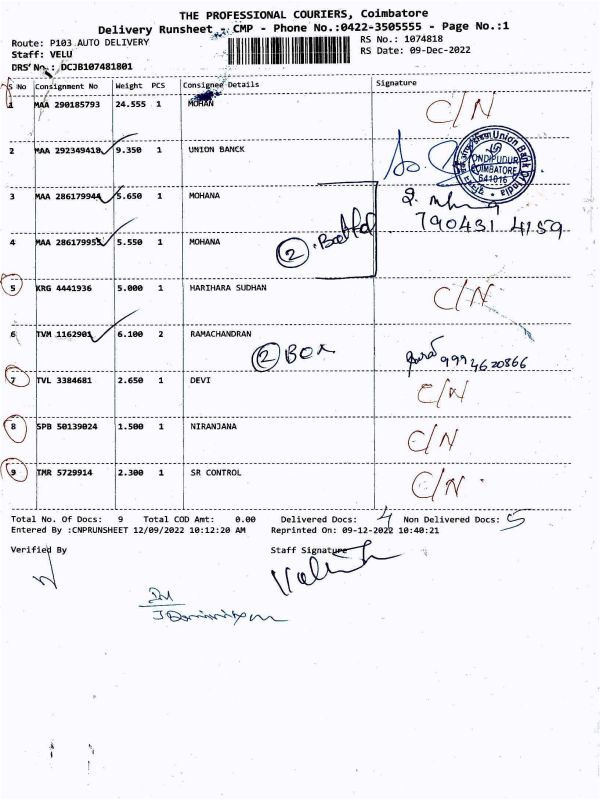 THE PROFESSIONAL COURIERS, Coimbatore
Delivery Runsheet - CMP - Phone No.:0422-3505555 - Page No.:1
Route: P103 AUTO DELIVERY
RS No.: 1074818
Staff: VELU
RS Date: 09-Dec-2022
DRS No.: DCJB107481801
S No Consignment No Weight PCS Consignee Details Signature
1 MAA 290185793 24.555 1 MOHAN C/N
2 MAA 292349418 9.350 1 UNION BANCK
Union Bank Of India
ONDIPUDUR
COIMBATORE
641016
3 MAA 286179944 5.650 1 MOHANA
790431 4159
4 MAA 286179955 5.550 1 MOHANA
2
5 KRG 4441936 5.000 1 HARIHARA SUDHAN C/N
6 TVM 1162901 6.100 2 RAMACHANDRAN
2 BOX 9994620866
7 TVL 3384681 2.650 1 DEVI C/N
8 SPB 50139024 1.500 1 NIRANJANA C/N
9 TMR 5729914 2.300 1 SR CONTROL C/N
Total No. Of Docs: 9 Total COD Amt: 0.00 Delivered Docs: 4 Non Delivered Docs: 5
Entered By :CNPRUNSHEET 12/09/2022 10:12:20 AM Reprinted On: 09-12-2022 10:40:21
Verified By Staff Signature